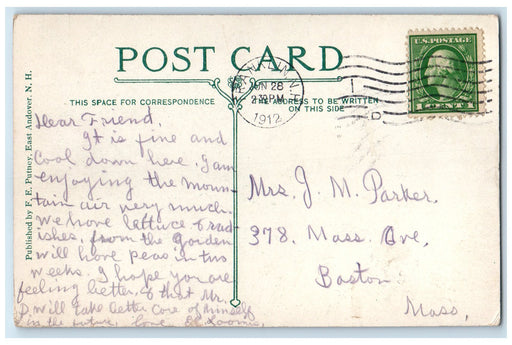 POST CARD
U.S. POSTAGE
1 CENT 1
FRANKLIN N.H.
JUN 28
2 30 PM
1912
THIS SPACE FOR CORRESPONDENCE
THE ADDRESS TO BE WRITTEN
ON THIS SIDE
Published by F. E. Putney, East Andover, N. H.
Dear Friend,
It is fine and
cool down here. I am
enjoying the moun-
tain air very much.
We have lettuce & rad-
ishes, from the garden
will have peas in two
weeks. I hope you are
feeling better, & that Mr.
P. will take better care of himself
in the future. Love,
Mrs. J. M. Parker,
378. Mass. Ave,
Boston
Mass,